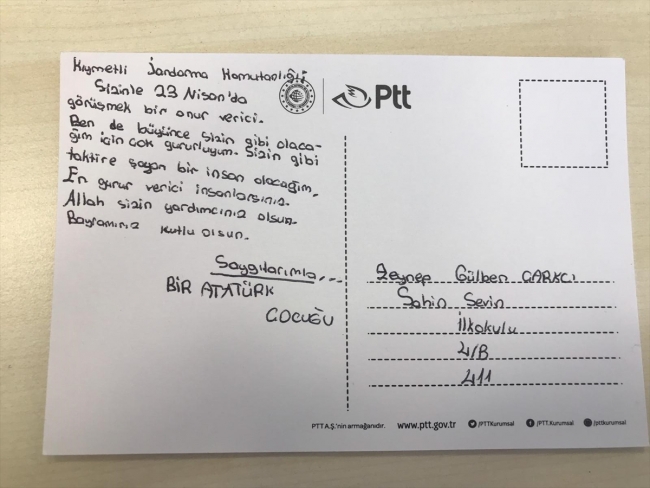 Kıymetli Jandarma Komutanlığı
Sizinle 23 Nisan'da
görüşmek bir onur verici.
Ben de büyünce sizin gibi olaca-
ğım için çok gururluyum. Sizin gibi
taktire şayan bir insan olacağım.
En gurur verici insanlarsınız.
Allah sizin yardımcınız olsun.
Bayramınız kutlu olsun.
Saygılarımla...
BİR ATATÜRK
ÇOCUĞU
Ptt
Zeynep Gülben ÇARKCI
Şahin Sevin
İlkokulu
4/B
411
PTT A.Ş.'nin armağanıdır. www.ptt.gov.tr /PTTKurumsal /PTT.Kurumsal /pttkurumsal